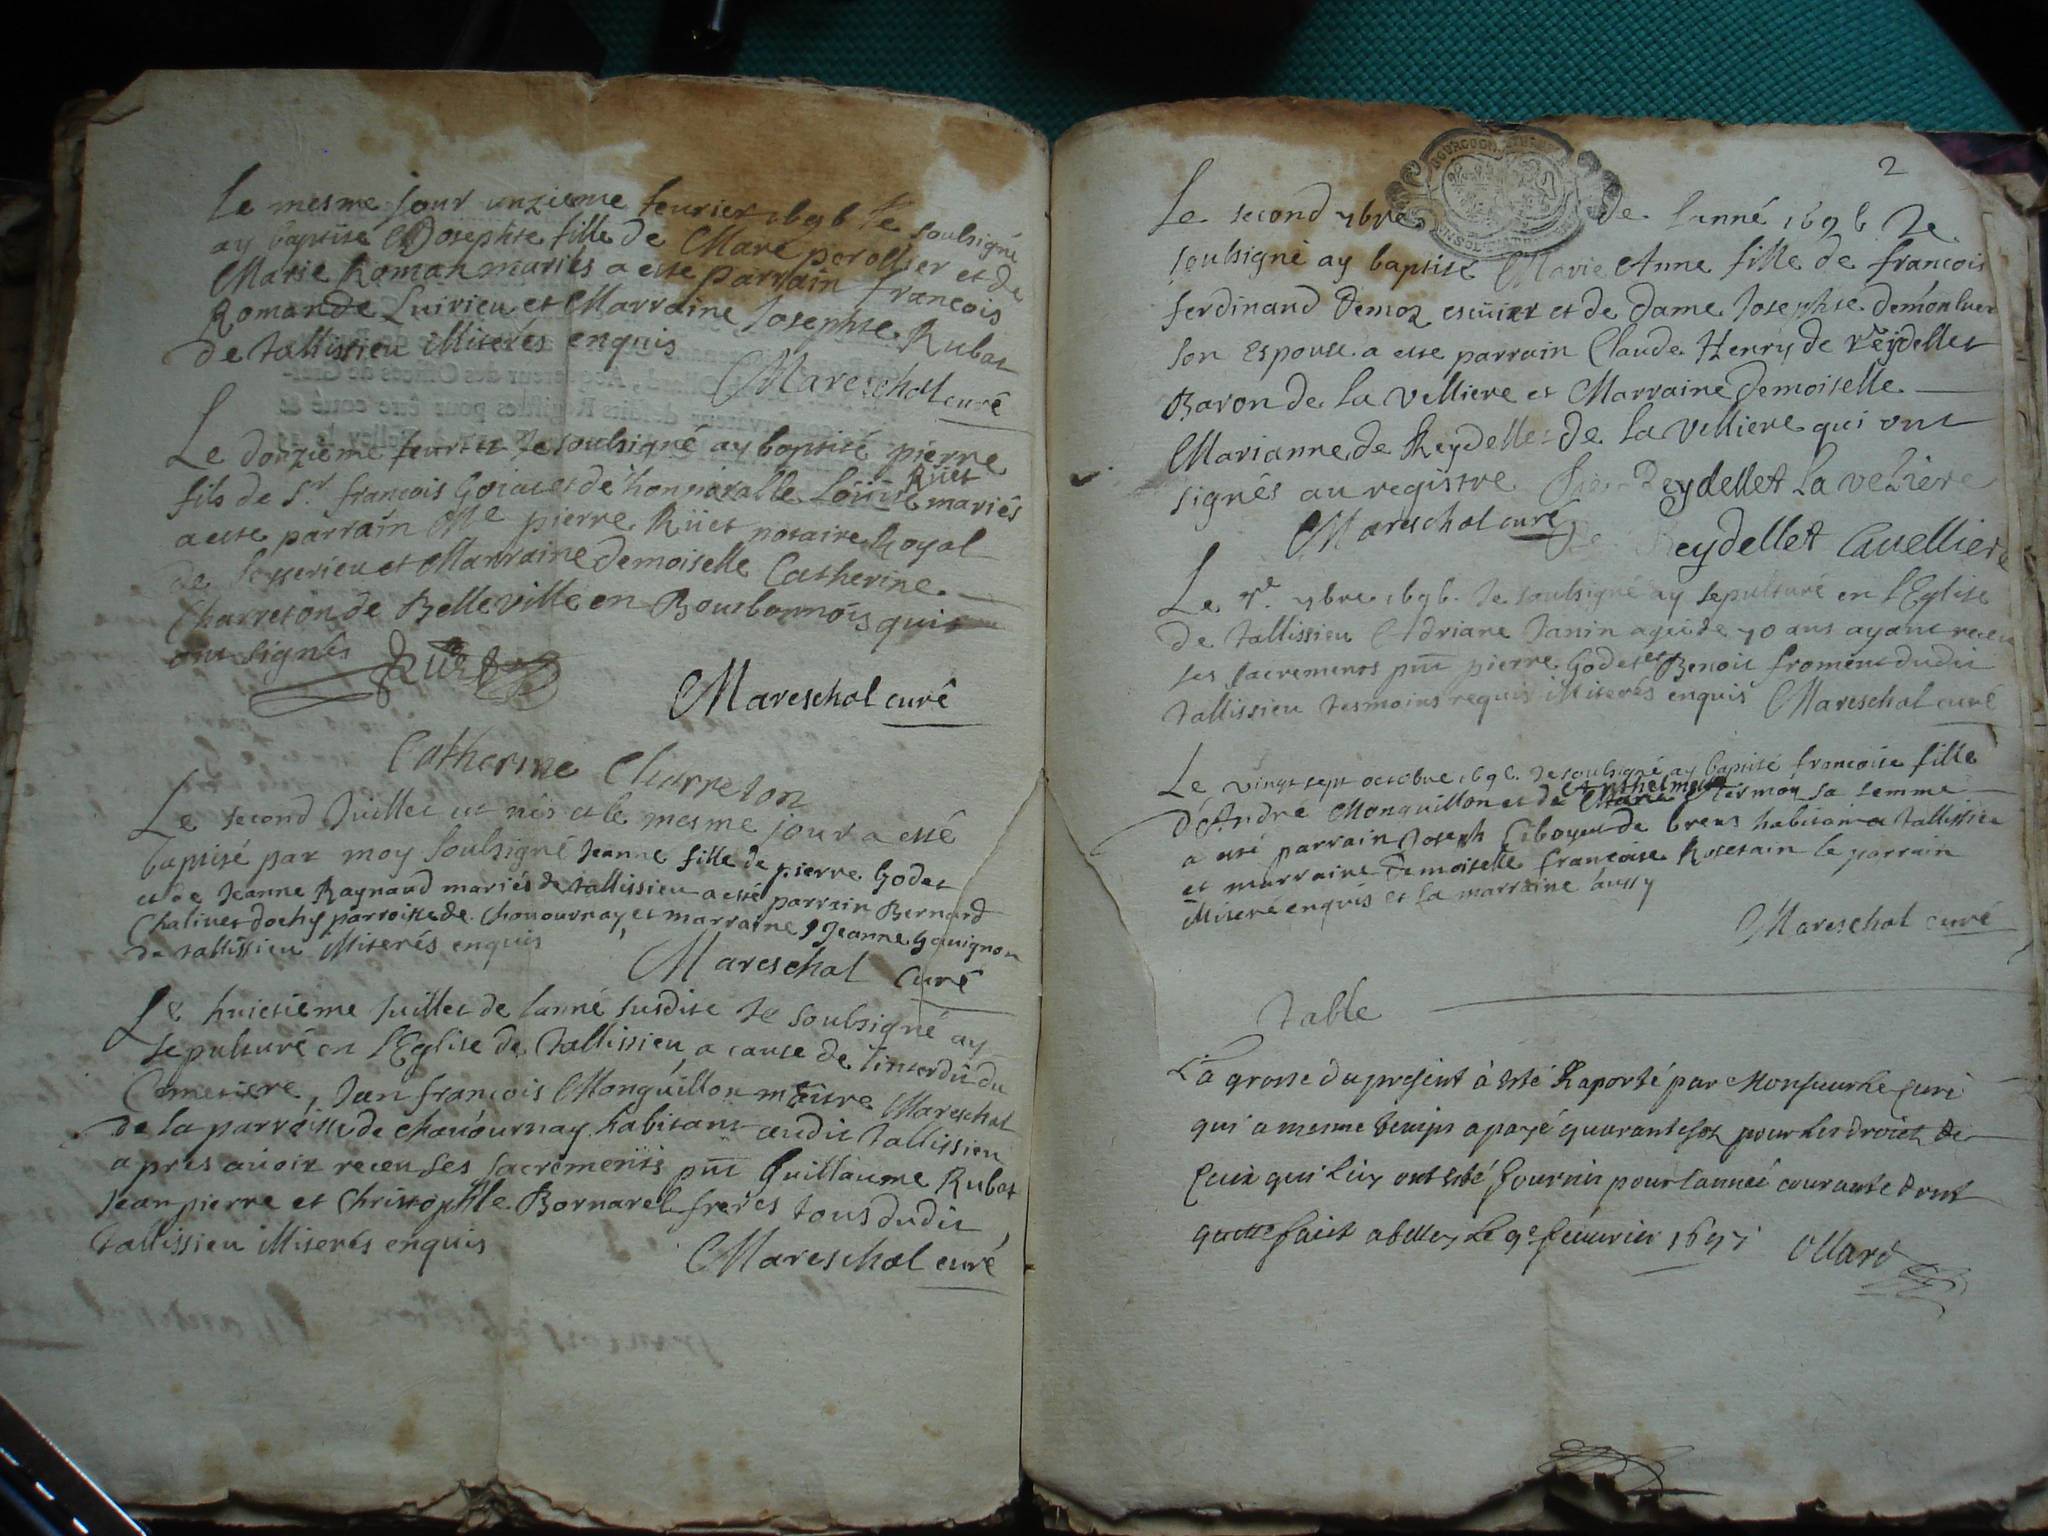 Le mesme jour unzieme feurier 1696 Je soubsigné
ay baptisé Josephte fille de Marc perollier et de
Marie Roman mariés a esté parrain francois
Roman de Luirieu et Marraine Josephte Rubat
de tallissieu illiterés enquis
Mareschal curé
Le douzieme feurier Je soubsigné ay baptisé pierre
fils de Sr francois et de honnorable Loüise Rüet mariés
a esté parrain Me pierre Rüet notaire Royal
de et Marraine demoiselle Catherine
Charreton de Belleville en Bourbonnois qui
ont signés Rüet
Mareschal curé
Catherine Charreton
Le second Juillet est née et le mesme jour a esté
baptisé par moy soubsigné Jeanne fille de pierre Godet
et de Jeanne Raynaud mariés de tallissieu a esté parrain Bernard
Chalivet dochy parroisse de Chauournay et marraine Jeanne
de tallissieu illiterés enquis
Mareschal curé
Le huictieme Juillet de lanné susdite Je soubsigné ay
sepulturé en l'Eglise de Tallissieu, a cause de l'interdit du
Cemetiere, Jan francois Monguillon meître Mareschal
de la parroisse de chauournay habitant audit Tallissieu
apres auoir receu ses sacrements pnt Guillaume Rubat
Jean pierre et Christophle Bornarel freres tous dudit
Tallissieu illiterés enquis
Mareschal curé
2
Le second 7bre de lanné 1696 Je
soubsigné ay baptisé Marie Anne fille de francois
ferdinand Demoz escüier et de dame Josephte demonluer
son espouse a esté parrain Claude Henry de Reydellet
Baron de la Velliere et Marraine demoiselle
Marianne de Reydellet de la Velliere qui ont
signés au registre Reydellet La veliere
Mareschal curé
Reydellet Lauelliere
Le 7bre 1696. Je soubsigné ay sepulturé en l'Eglise
de tallissieu Adriane Janin agée de 70 ans ayant receu
ses sacrements pnt pierre Godet et Benoit froment dudit
tallissieu tesmoins requis illiterés enquis Mareschal curé
Le vingt sept octobre 1696. Je soubsigné ay baptisé francoise fille
d'André Monguillon et de Anthelmette sa femme
a esté parrain Joseph de brens habitant a tallissieu
et marraine demoiselle francoise Rosetain le parrain
illiteré enquis et la marraine aussy
Mareschal curé
Table
La grosse du present à esté Raporté par Monsieur le Curé
qui a mesme temps a payé quarante sol pour les droict de
Ceux qui luy ont esté fournis pour l'année courante dont
quitte faict a belley Le 9e feuurier 1697 Ollard